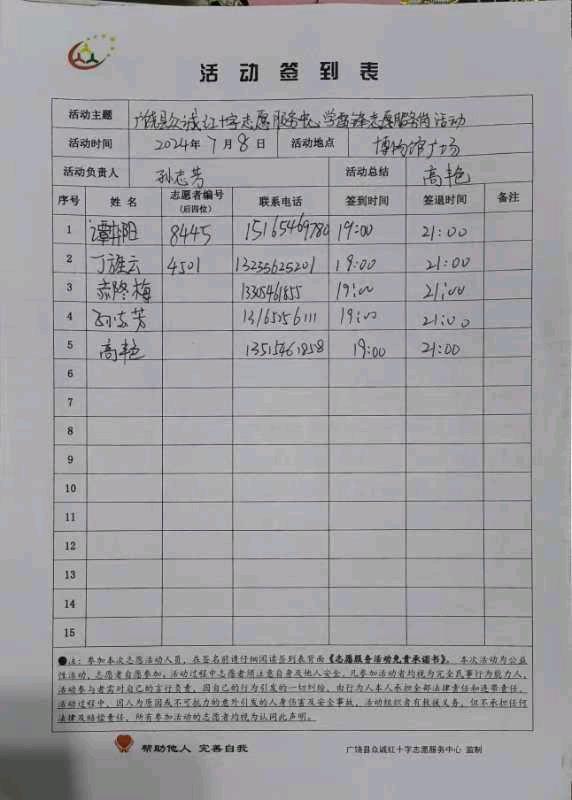 活动签到表
活动主题 广饶县众诚红十字志愿服务中心学雷锋志愿服务岗活动
活动时间 2024年7月8日 活动地点 博物馆广场
活动负责人 孙志芳 活动总结 高艳
序号 姓名 志愿者编号（后四位） 联系电话 签到时间 签退时间 备注
1 谭朝阳 8445 15165469780 19:00 21:00
2 丁维云 4501 13235625201 19:00 21:00
3 梅 13305461855 19:00 21:00
4 孙志芳 19:00 21:00
5 高艳 13515461858 19:00 21:00
6
7
8
9
10
11
12
13
14
15
●注：参加本次志愿活动人员，在签名前请仔细阅读签到表背面《志愿服务活动免责承诺书》。本次活动为公益
性活动，志愿者自愿参加，活动过程中志愿者须注意自身及他人安全。凡参加活动者均视为完全民事行为能力人，
活动参与者需对自己的言行负责，因自己的行为引发的一切纠纷，由行为人本人承担全部法律责任和连带责任。
活动过程中，因人为原因或不可抗力的意外引发的人身伤害及安全事故，活动组织者有救援义务，但不承担任何
法律及赔偿责任，所有参加活动的志愿者均视为认同此声明。
帮助他人 完善自我 广饶县众诚红十字志愿服务中心 监制